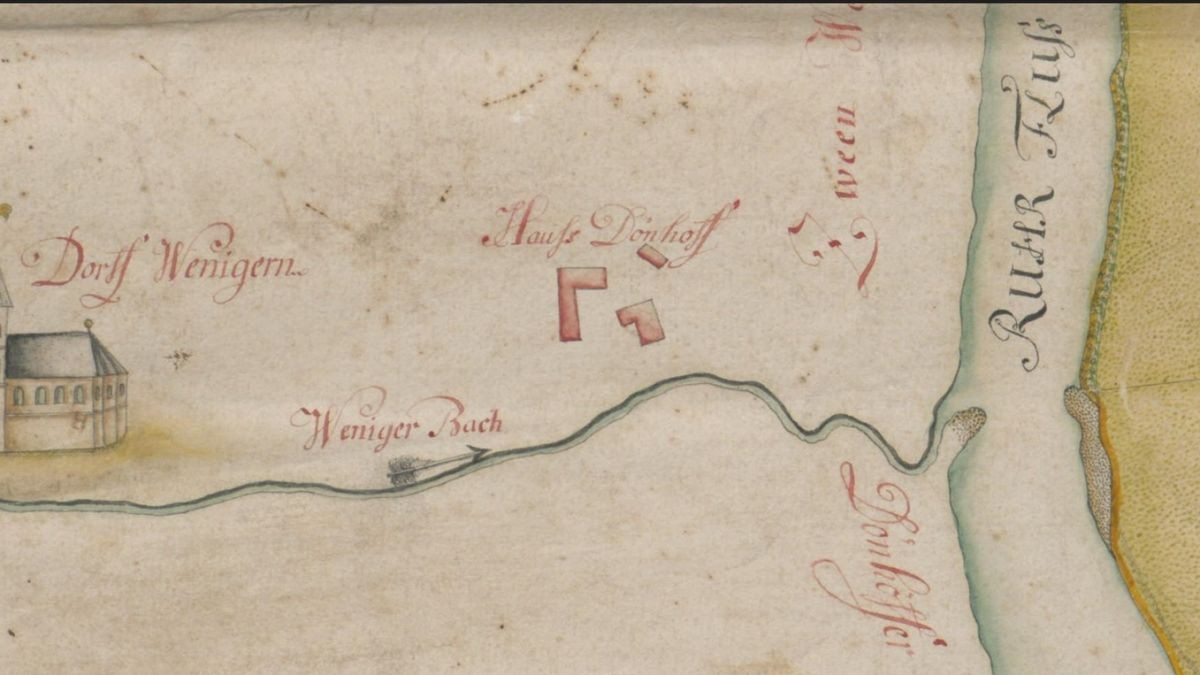 Dorff Wenigern
Hauss Dönhoff
Weniger Bach
Zween
RUHR FLuss
Dönhöffer